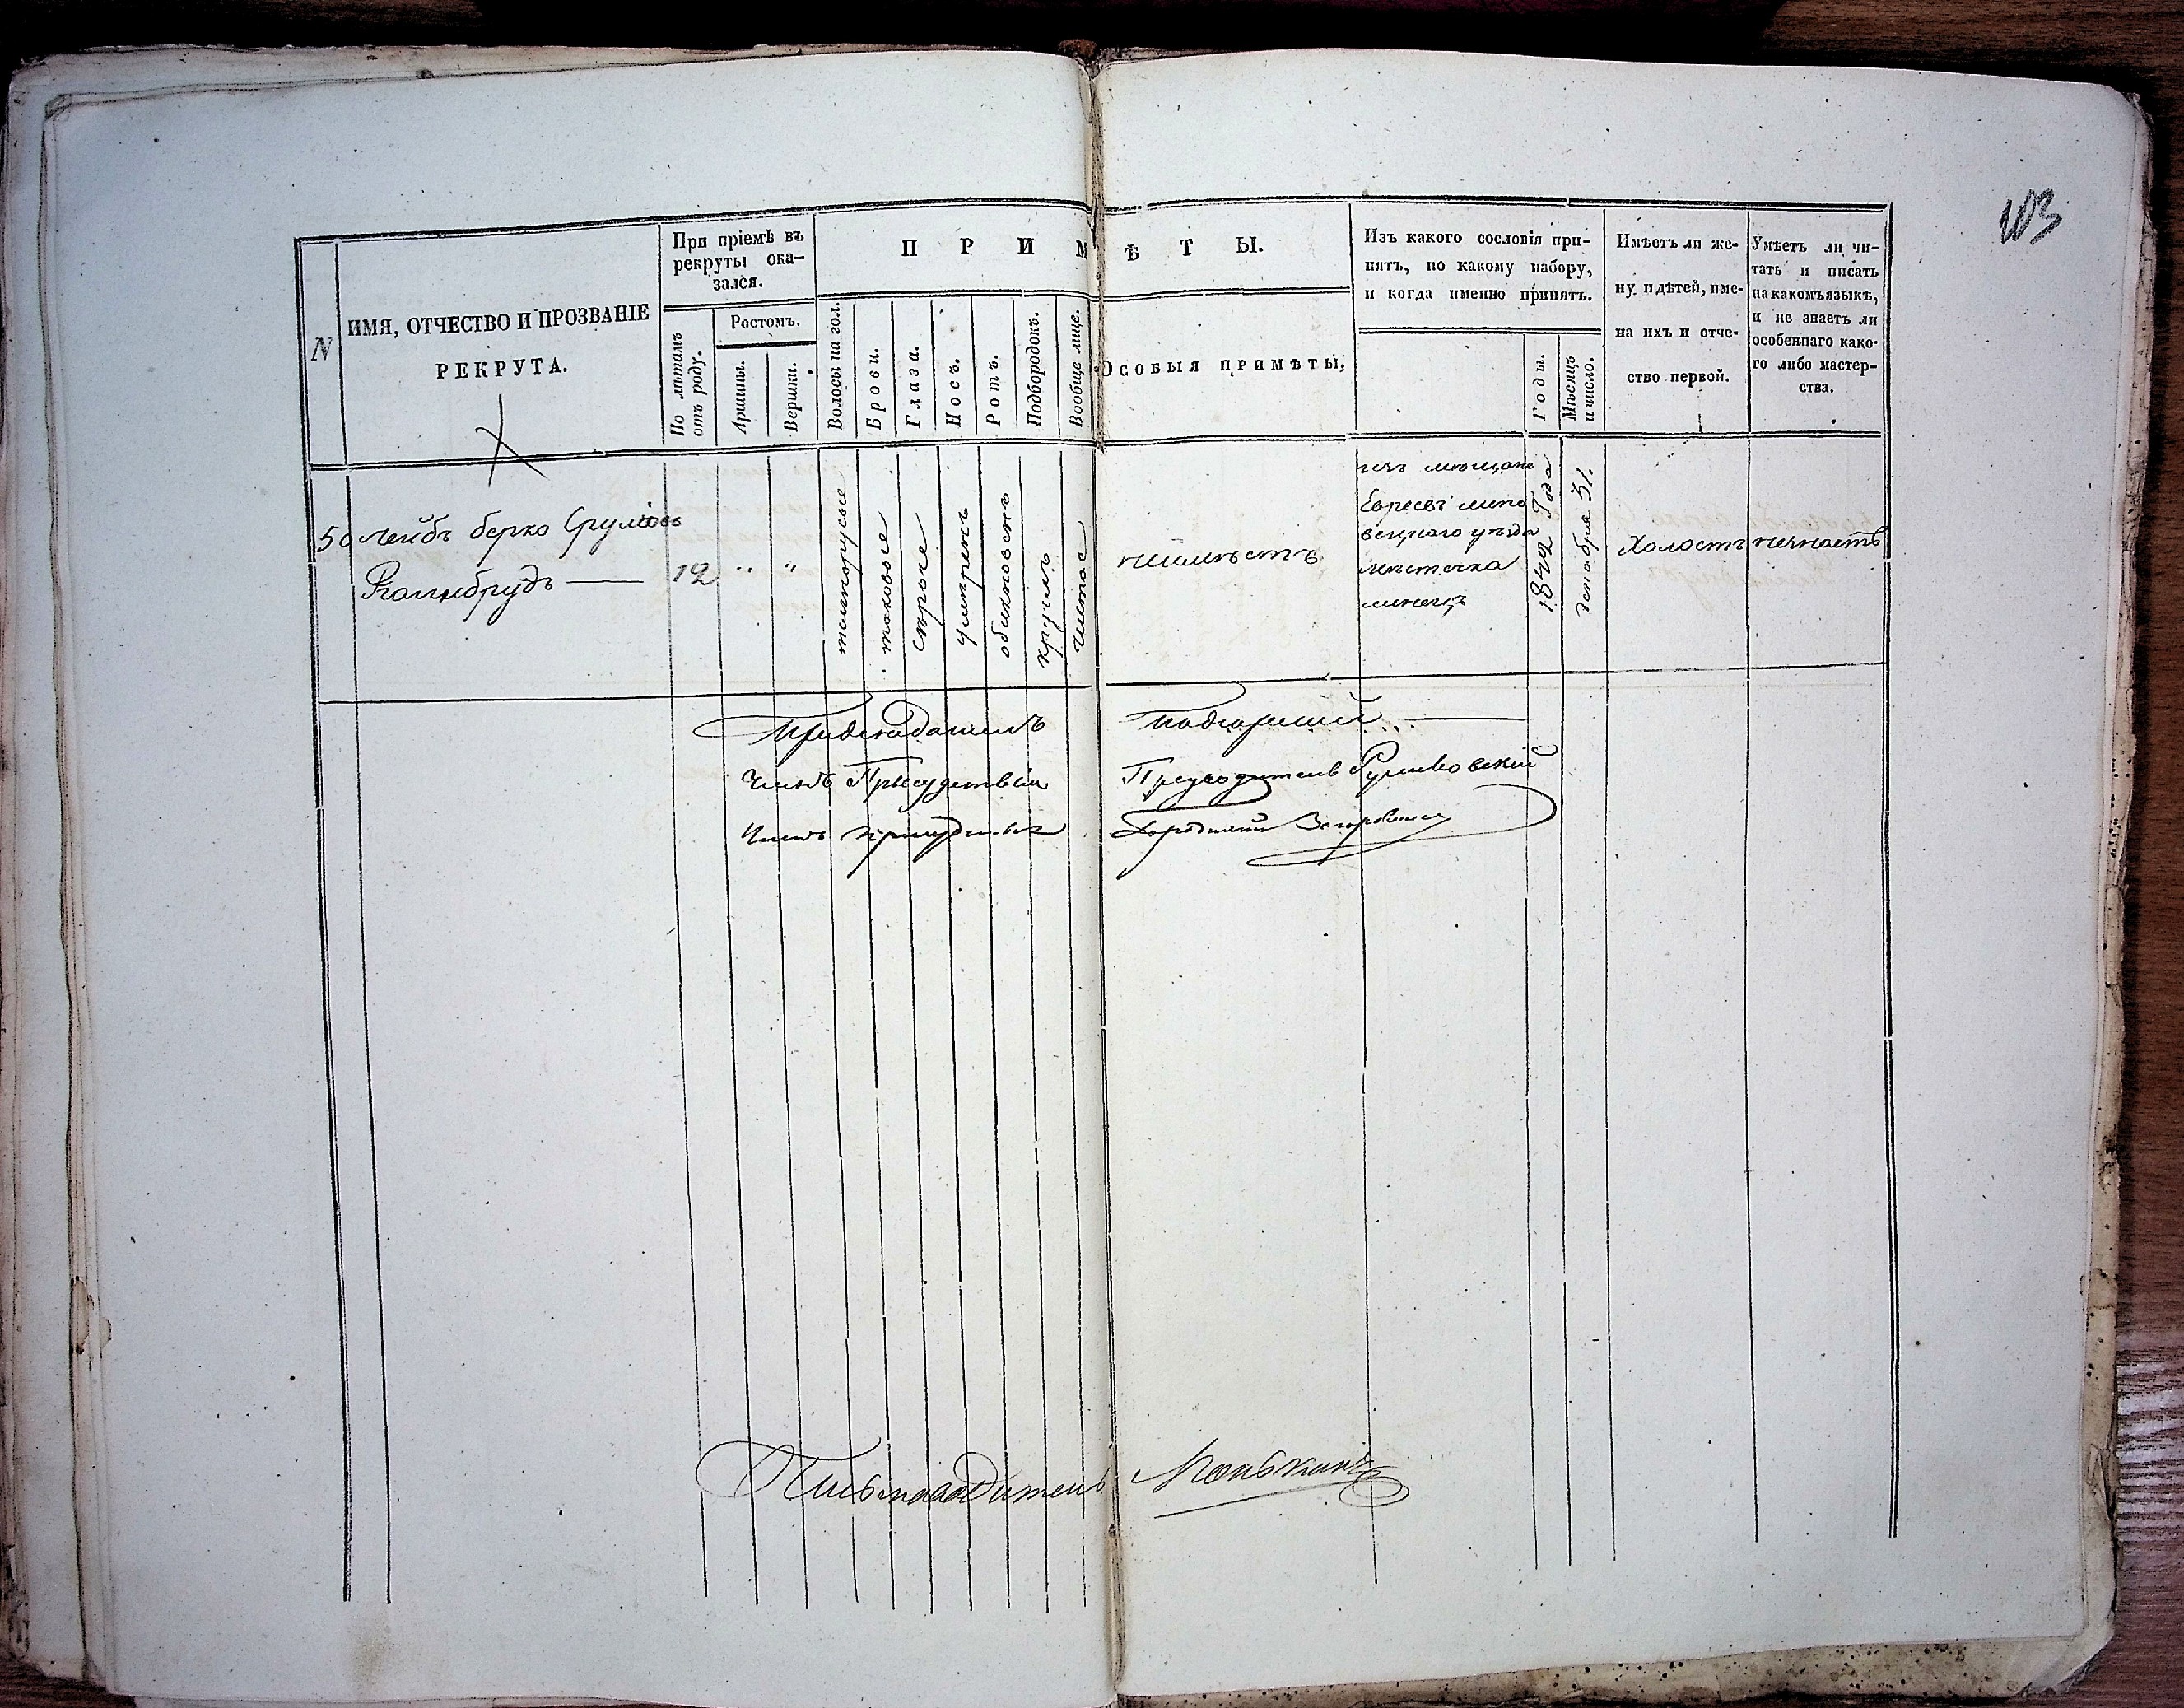 103
N
ИМЯ, ОТЧЕСТВО И ПРОЗВАНІЕ
РЕКРУТА.
При пріемѣ въ
рекруты ока-
зался.
По лѣтамъ
отъ роду.
Ростомъ.
Аршины.
Вершки.
ПРИМѢТЫ.
Волосы на гол.
Брови.
Глаза.
Носъ.
Ротъ.
Подбородокъ.
Вообще лице.
ОСОБЫЯ ПРИМѢТЫ,
Изъ какого сословія при-
нятъ, по какому набору,
и когда именно принятъ.
Годы.
Мѣсяцъ
и число.
Имѣетъ ли же-
ну и дѣтей, име-
на ихъ и отче-
ство первой.
Умѣетъ ли чи-
тать и писать
на какомъ языкѣ,
и не знаетъ ли
особеннаго како-
го либо мастер-
ства.
50
Лейбъ берко Срулiовъ
12
" "
таковые
сѣрые
умѣренъ
обыкновенъ
круглъ
чистое
неимѣетъ
изъ мѣщанъ
Евреевъ липо
вецкаго уѣзда
мѣстечка
1842 Года
декабря 31.
Холостъ
незнаетъ
Членъ Присудствiя
Членъ
Письмоводитель